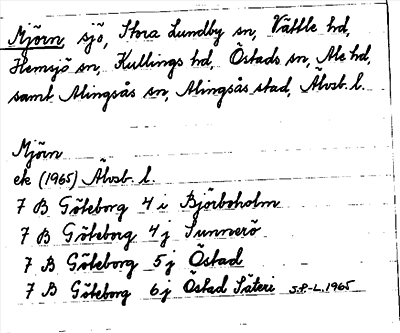 Mjörn sjö, Stora Lundby sn, Vättle hd,
Hemsjö sn, Kullings hd, Östads sn, Ale hd,
samt Alingsås sn, Alingsås stad, Älvsb. l.
Mjörn
ek (1965) Älvsb. l.
7 B Göteborg 4 i Björboholm
7 B Göteborg 4 j Sunnerö
7 B Göteborg 5 j Östad
7 B Göteborg 6 j Östad Säteri S.P-L. 1965